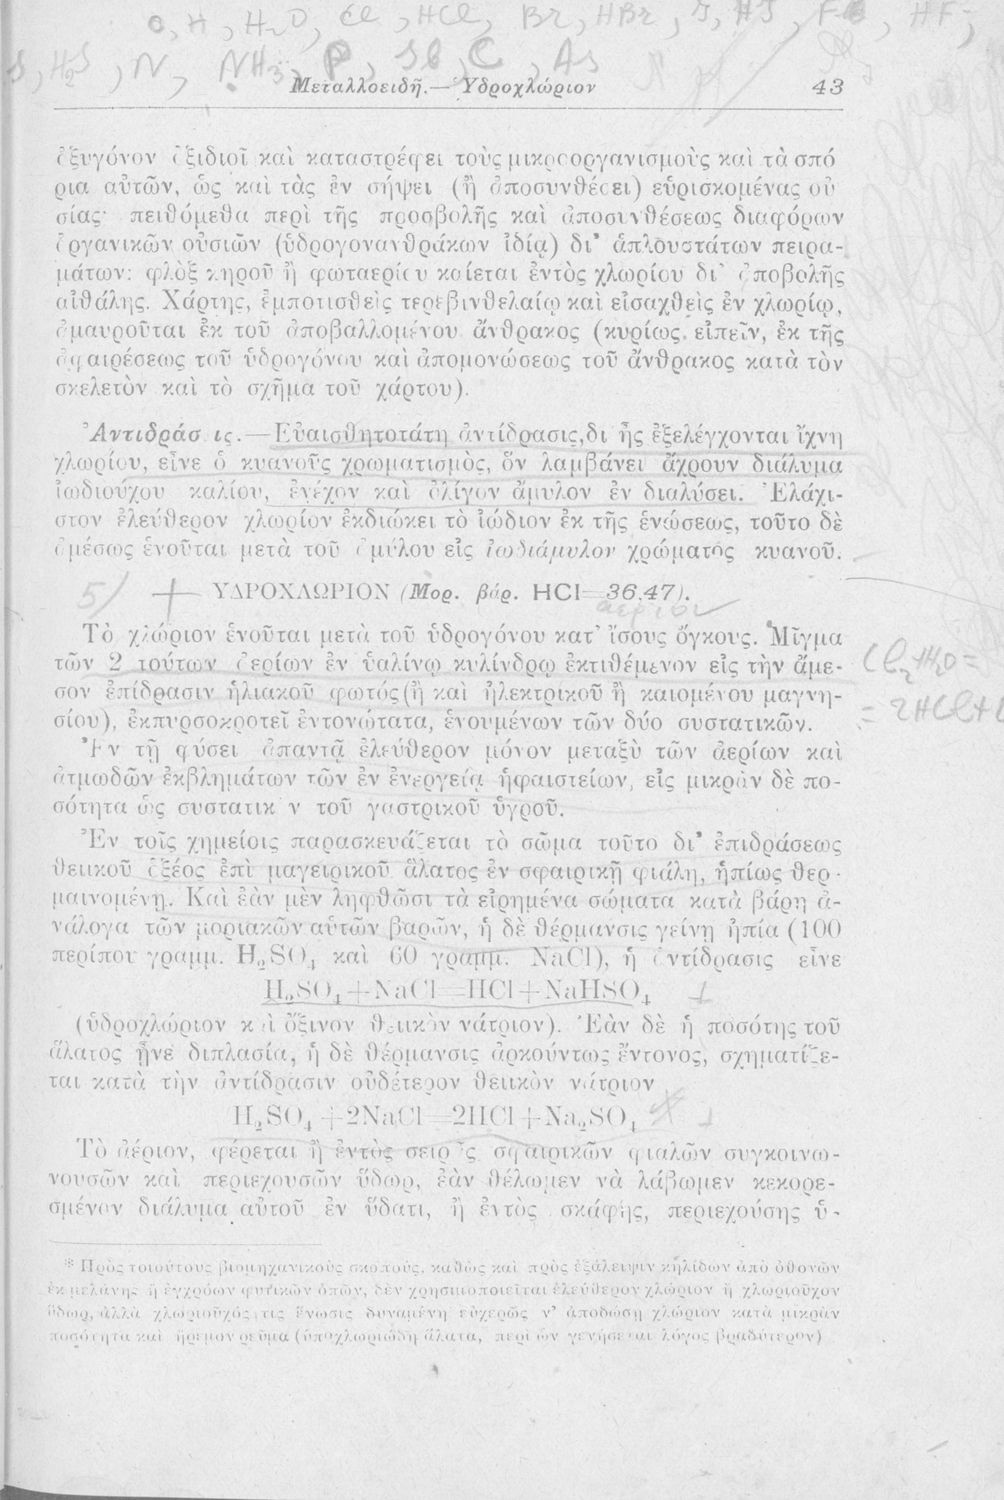 O, H, H₂O, Cl, HCl, Br, HBr, J, HJ, HF,
S, H₂S, N, NH₃, P, Sb, C, As
Μεταλλοειδῆ.— Ὑδροχλώριον 43
ὀξυγόνον ὀξιδιοῖ καὶ καταστρέφει τοὺς μικροοργανισμοὺς καὶ τὰ σπό
ρια αὐτῶν, ὡς καὶ τὰς ἐν σήψει (ἢ ἀποσυνθέσει) εὑρισκομένας οὐ
σίας· πειθόμεθα περὶ τῆς προσβολῆς καὶ ἀποσυνθέσεως διαφόρων
ὀργανικῶν οὐσιῶν (ὑδρογονανθράκων ἰδίᾳ) δι' ἁπλουστάτων πειρα-
μάτων: φλὸξ κηροῦ ἢ φωταερίου καίεται ἐντὸς χλωρίου δι' ἀποβολῆς
αἰθάλης. Χάρτης, ἐμποτισθεὶς τερεβινθελαίῳ καὶ εἰσαχθεὶς ἐν χλωρίῳ,
ἀμαυροῦται ἐκ τοῦ ἀποβαλλομένου ἄνθρακος (κυρίως εἰπεῖν, ἐκ τῆς
ἀφαιρέσεως τοῦ ὑδρογόνου καὶ ἀπομονώσεως τοῦ ἄνθρακος κατὰ τὸν
σκελετὸν καὶ τὸ σχῆμα τοῦ χάρτου).
Ἀντιδράσ ις.—Εὐαισθητοτάτη ἀντίδρασις, δι ἧς ἐξελέγχονται ἴχνη
χλωρίου, εἶνε ὁ κυανοῦς χρωματισμὸς, ὃν λαμβάνει ἄχρουν διάλυμα
ἰωδιούχου καλίου, ἐνέχον καὶ ὀλίγον ἄμυλον ἐν διαλύσει. Ἐλάχι-
στον ἐλεύθερον χλωρίον ἐκδιώκει τὸ ἰώδιον ἐκ τῆς ἑνώσεως, τοῦτο δὲ
ἀμέσως ἑνοῦται μετὰ τοῦ ἀμύλου εἰς ἰωδιάμυλον χρώματος κυανοῦ.
5) + ΥΔΡΟΧΛΩΡΙΟΝ (Μορ. βάρ. HCl=36.47).
αεριον
Τὸ χλώριον ἑνοῦται μετὰ τοῦ ὑδρογόνου κατ' ἴσους ὄγκους. Μῖγμα
τῶν 2 τούτων ἀερίων ἐν ὑαλίνῳ κυλίνδρῳ ἐκτιθέμενον εἰς τὴν ἄμε-
σον ἐπίδρασιν ἡλιακοῦ φωτός (ἢ καὶ ἠλεκτρικοῦ ἢ καιομένου μαγνη-
σίου), ἐκπυρσοκροτεῖ ἐντονώτατα, ἑνουμένων τῶν δύο συστατικῶν.
Cl₂+H₂O=
=2HCl+
Ἐν τῇ φύσει ἀπαντᾷ ἐλεύθερον μόνον μεταξὺ τῶν ἀερίων καὶ
ἀτμωδῶν ἐκβλημάτων τῶν ἐν ἐνεργείᾳ ἡφαιστείων, εἰς μικρὰν δὲ πο-
σότητα ὡς συστατικ ν τοῦ γαστρικοῦ ὑγροῦ.
Ἐν τοῖς χημείοις παρασκευάζεται τὸ σῶμα τοῦτο δι' ἐπιδράσεως
θειικοῦ ὀξέος ἐπὶ μαγειρικοῦ ἅλατος ἐν σφαιρικῇ φιάλῃ, ἠπίως θερ-
μαινομένῃ. Καὶ ἐὰν μὲν ληφθῶσι τὰ εἰρημένα σώματα κατὰ βάρη ἀ-
νάλογα τῶν μοριακῶν αὐτῶν βαρῶν, ἡ δὲ θέρμανσις γείνῃ ἠπία (100
περίπου γραμμ. H₂SO₄ καὶ 60 γραμμ. NaCl), ἡ ἀντίδρασις εἶνε
H₂SO₄+NaCl=HCl+NaHSO₄
(ὑδροχλώριον κ ὶ ὄξινον θειικὸν νάτριον). Ἐὰν δὲ ἡ ποσότης τοῦ
ἅλατος ᾖνε διπλασία, ἡ δὲ θέρμανσις ἀρκούντως ἔντονος, σχηματίζε-
ται κατὰ τὴν ἀντίδρασιν οὐδέτερον θειικὸν νάτριον
H₂SO₄+2NaCl=2HCl+Na₂SO₄
Τὸ ἀέριον, φέρεται ἢ ἐντὸς σειρᾶς σφαιρικῶν φιαλῶν συγκοινω-
νουσῶν καὶ περιεχουσῶν ὕδωρ, ἐὰν θέλωμεν νὰ λάβωμεν κεκορε-
σμένον διάλυμα αὐτοῦ ἐν ὕδατι, ἢ ἐντὸς σκάφης, περιεχούσης ὑ-
* Πρὸς τοιούτους βιομηχανικοὺς σκοποὺς, καθὼς καὶ πρὸς ἐξάλειψιν κηλίδων ἀπὸ ὀθονῶν
ἐκ μελάνης ἢ ἐγχρόων φυτικῶν ὀπῶν, δὲν χρησιμοποιεῖται ἐλεύθερον χλώριον ἢ χλωριοῦχον
ὕδωρ, ἀλλὰ χλωριοῦχός τις ἕνωσις δυναμένη εὐχερῶς ν' ἀποδώσῃ χλώριον κατὰ μικρὰν
ποσότητα καὶ ἤρεμον ρεῦμα (ὑποχλωριώδη ἅλατα, περὶ ὧν γενήσεται λόγος βραδύτερον)